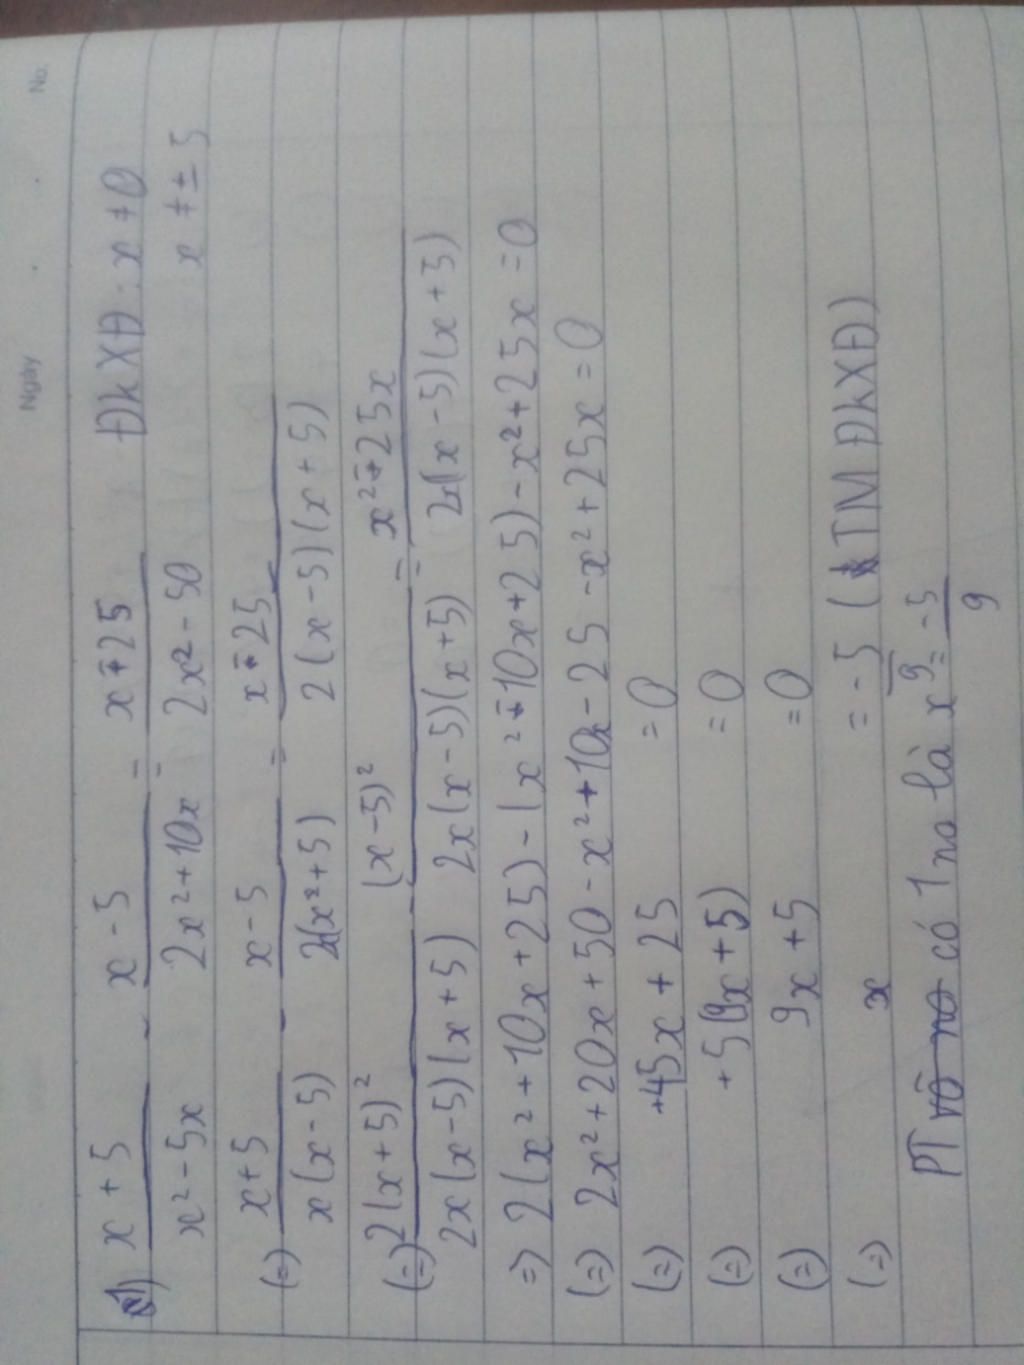 Ngày No.
d) x + 5 / x² - 5x - x - 5 / 2x² + 10x = x - 25 / 2x² - 50 ĐKXĐ: x ≠ 0
x ≠ ± 5
(=) x + 5 / x(x - 5) - x - 5 / 2x(x + 5) = x - 25 / 2(x - 5)(x + 5)
(=) 2(x + 5)² / 2x(x - 5)(x + 5) - (x - 5)² / 2x(x - 5)(x + 5) = x² - 25x / 2x(x - 5)(x + 5)
=> 2(x² + 10x + 25) - (x² - 10x + 25) - x² + 25x = 0
(=) 2x² + 20x + 50 - x² + 10x - 25 - x² + 25x = 0
(=) +45x + 25 = 0
(=) +5(9x + 5) = 0
(=) 9x + 5 = 0
(=) x = -5/9 (TM ĐKXĐ)
PT vô no có 1 no là x = -5/9